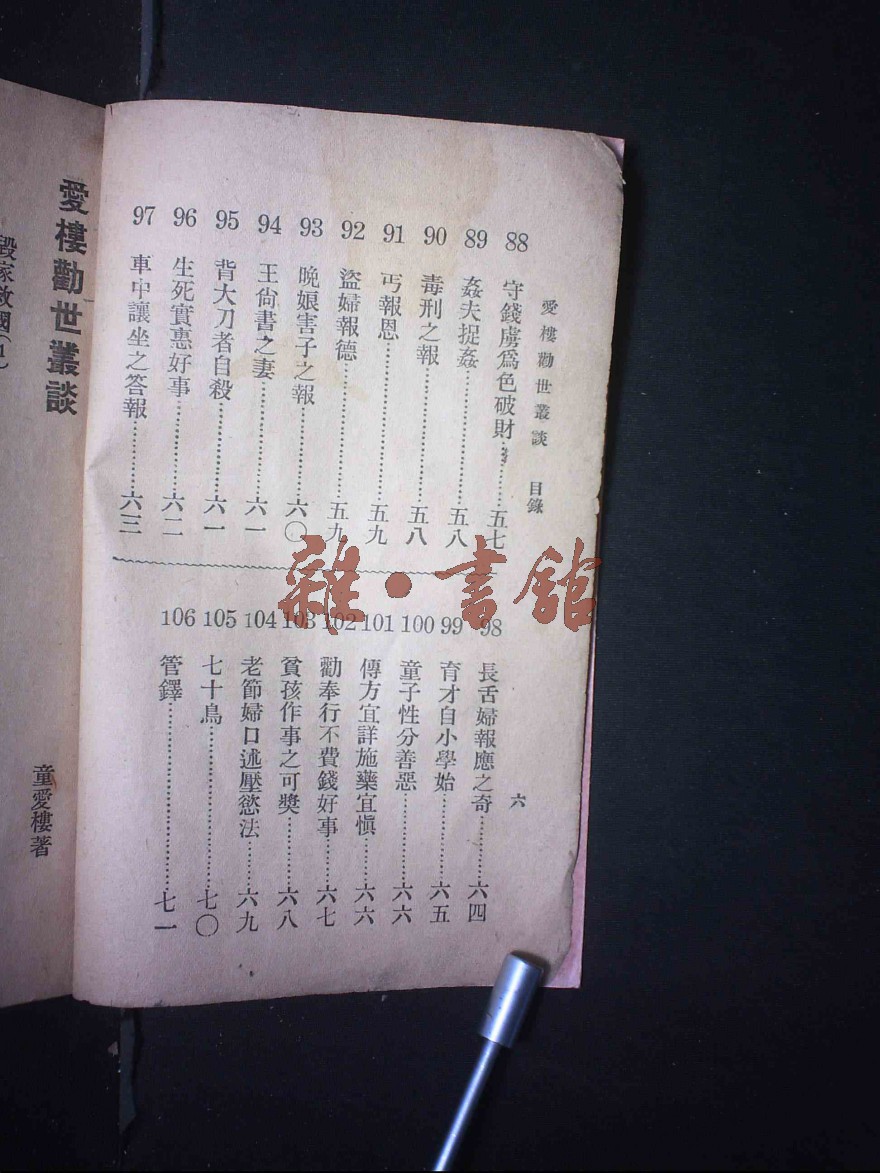 愛樓勸世叢談 目錄 六
88 守錢虜爲色破財………五七
89 姦夫捉姦………五八
90 毒刑之報………五八
91 丐報恩………五九
92 盜婦報德………五九
93 晚娘害子之報………六〇
94 王尙書之妻………六一
95 背大刀者自殺………六一
96 生死實惠好事………六二
97 車中讓坐之答報………六三
98 長舌婦報應之奇………六四
99 育才自小學始………六五
100 童子性分善惡………六六
101 傳方宜詳施藥宜愼………六六
102 勸奉行不費錢好事………六七
103 貧孩作事之可獎………六八
104 老節婦口述壓慾法………六九
105 七十鳥………七〇
106 管鐸………七一
愛樓勸世叢談
童愛樓著
毀家救國(1)
雜·書館